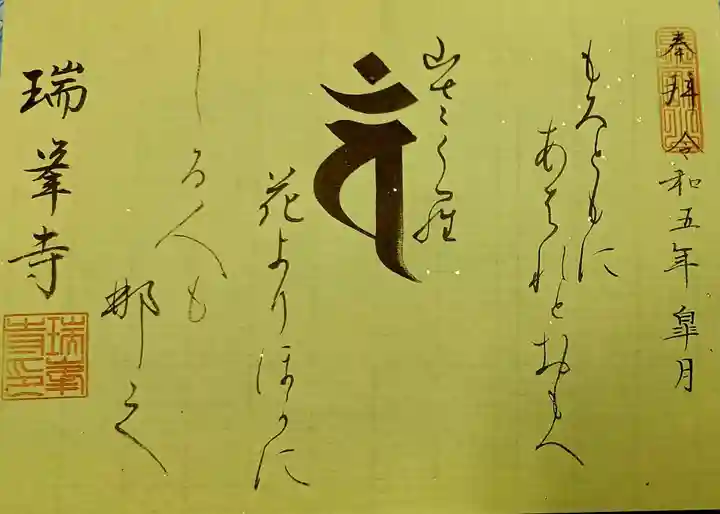 奉拝 令和五年 皐月
もろともに
あはれとおもへ
山さくら
花よりほかに
しる人も
那之
瑞峯寺
瑞峯寺印